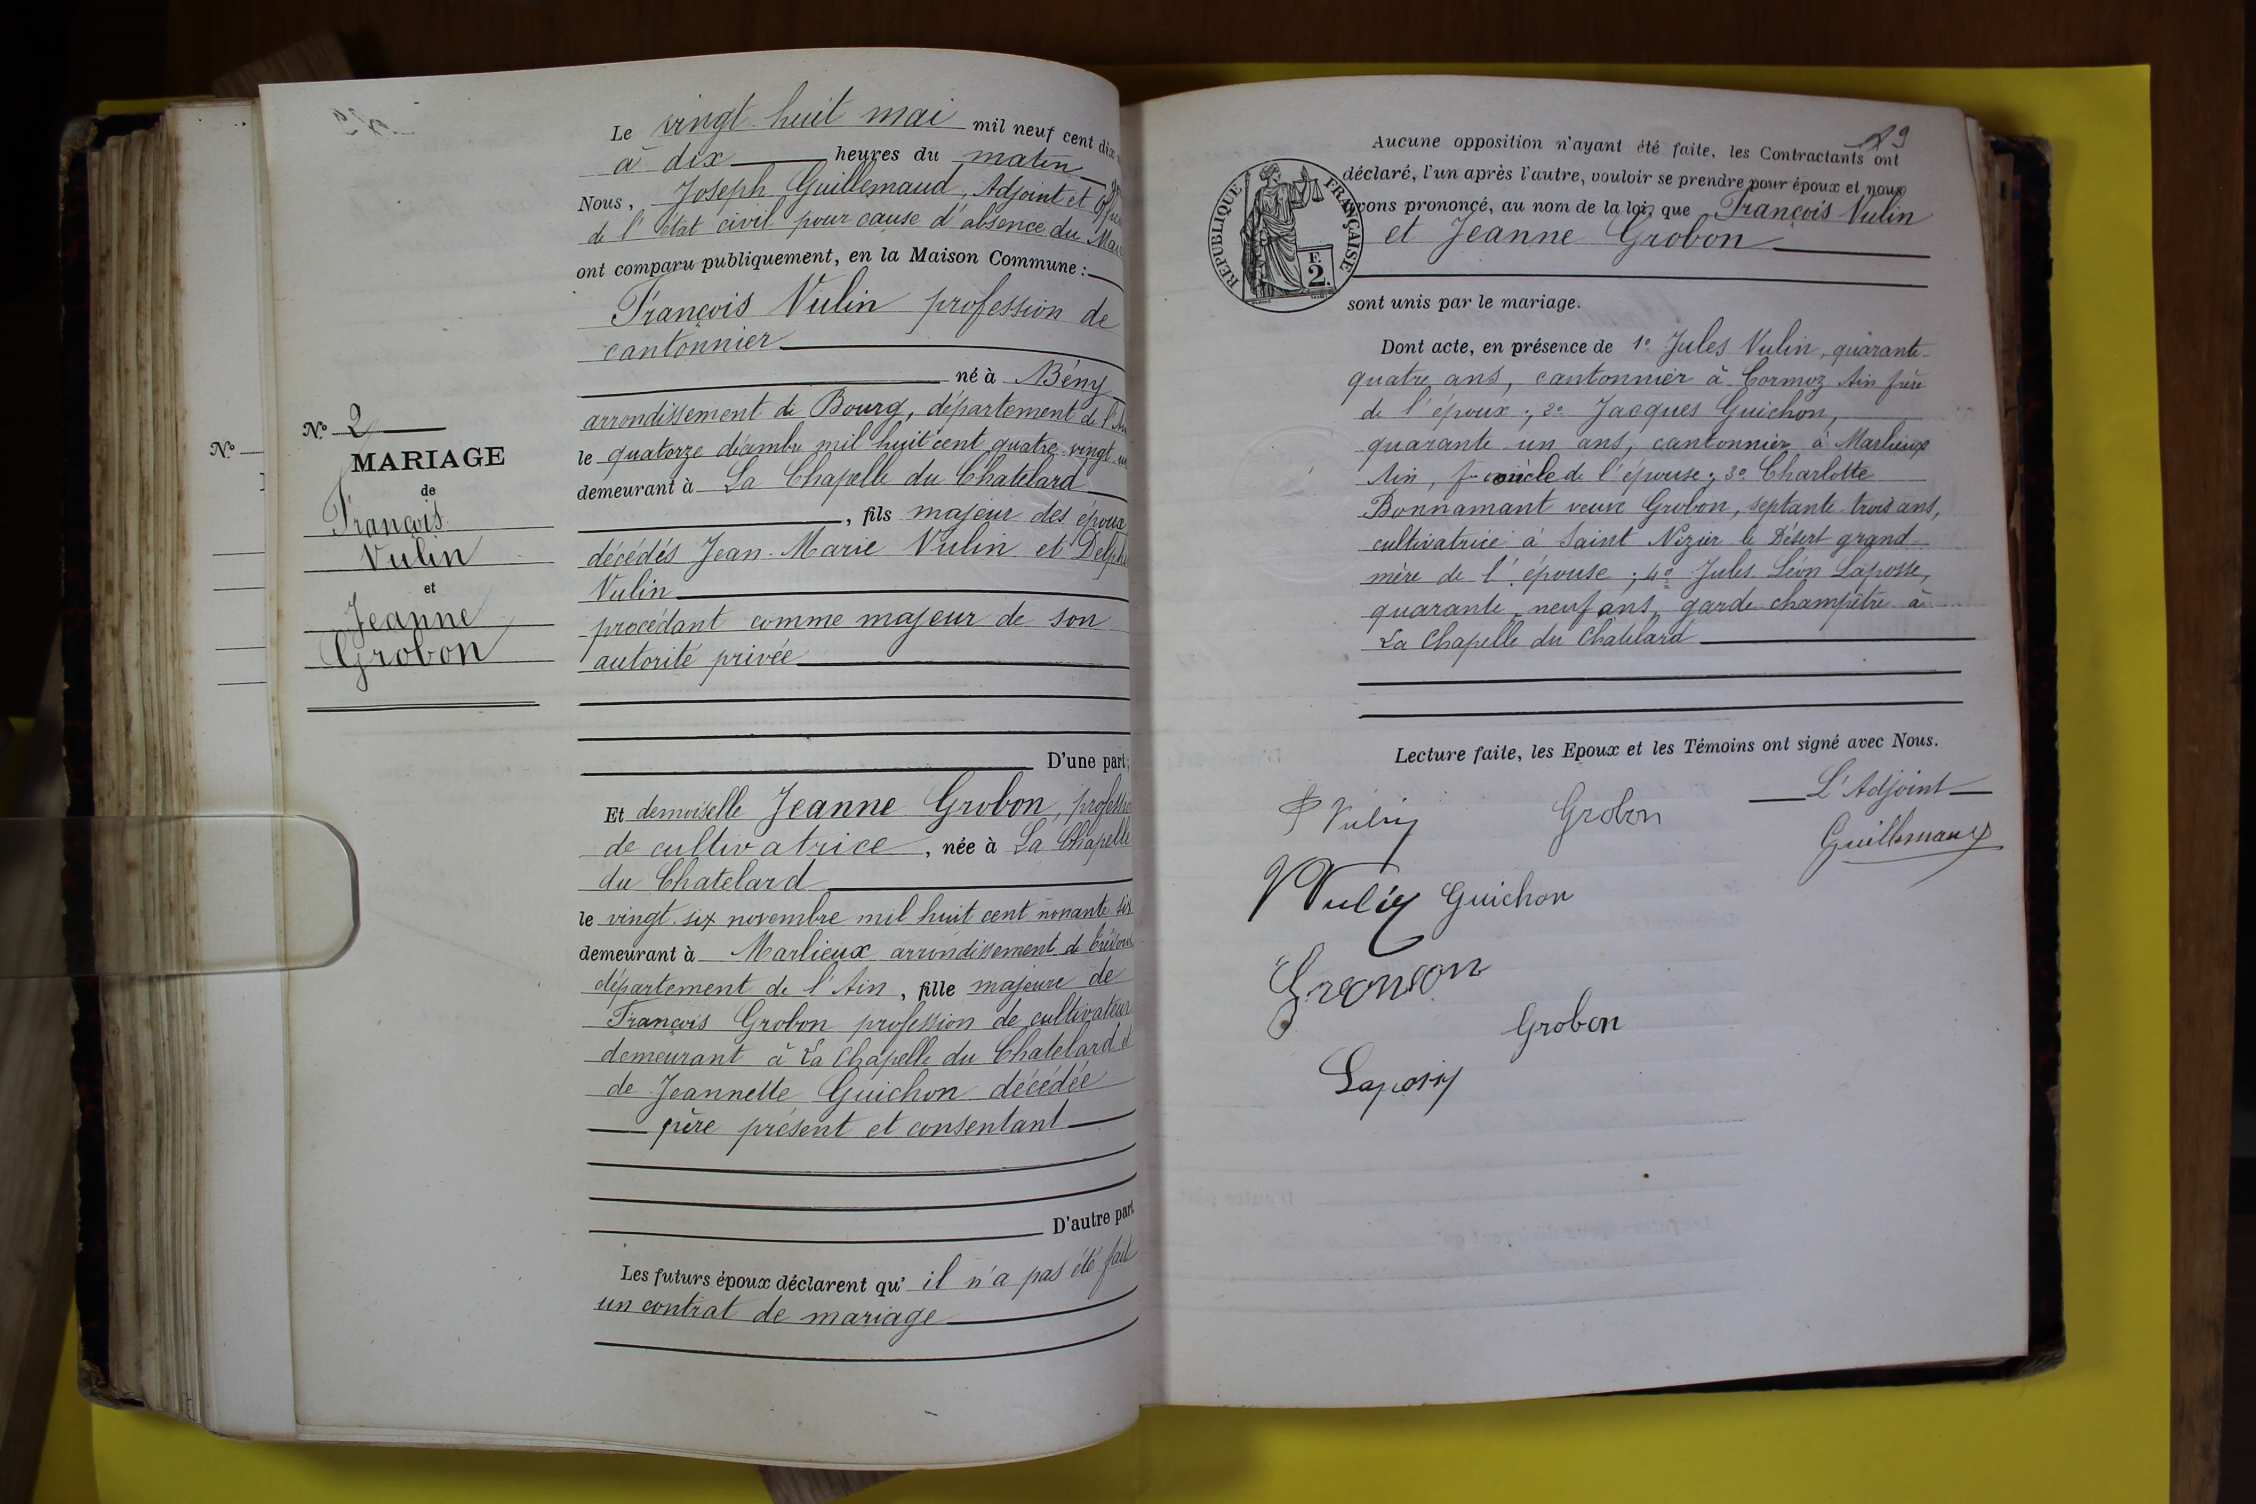 N.º
N.º 2
MARIAGE
de
François
Vulin
et
Jeanne
Grobon
Le vingt huit mai mil neuf cent dix
à dix heures du matin
Nous, Joseph Guillemaud, Adjoint et
de l'état civil pour cause d'absence du
ont comparu publiquement, en la Maison Commune :
François Vulin profession de
cantonnier
né à Bény
arrondissement de Bourg, département de l'
le quatorze décembre mil huit cent quatre vingt
demeurant à La Chapelle du Chatelard
, fils majeur des époux
décédés Jean-Marie Vulin et
Vulin
procédant comme majeur de son
autorité privée
D'une part;
Et demoiselle Jeanne Grobon,
de cultivatrice, née à La Chapelle
du Chatelard
le vingt-six novembre mil huit cent nonante six
demeurant à Marlieux arrondissement de
département de l'Ain, fille majeure de
François Grobon profession de cultivateur
demeurant à La Chapelle du Chatelard et
de Jeannette Guichon décédée
père présent et consentant
D'autre part
Les futurs époux déclarent qu' il n'a pas été fait
un contrat de mariage
Aucune opposition n'ayant été faite, les Contractants ont
déclaré, l'un après l'autre, vouloir se prendre pour époux et nous
avons prononcé, au nom de la loi, que François Vulin
et Jeanne Grobon
RÉPUBLIQUE FRANÇAISE
F.
2.
sont unis par le mariage.
Dont acte, en présence de 1º Jules Vulin, quarante-
quatre ans, cantonnier à Cormoz Ain frère
de l'époux ; 2º Jacques Guichon,
quarante un ans, cantonnier à Marlieux
Ain, oncle de l'épouse ; 3º Charlotte
Bonnamant veuve Grobon, septante-trois ans,
cultivatrice à Saint Nizier le Désert grand-
mère de l'épouse ; 4º Jules Léon Laposse,
quarante-neuf ans, garde-champêtre à
La Chapelle du Chatelard
Lecture faite, les Epoux et les Témoins ont signé avec Nous.
L'Adjoint
Grobon
Guichon
Grobon